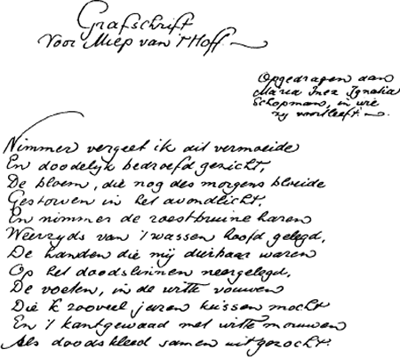 Grafschrift
Voor Miep van 't Hoff.
Opgedragen aan
Maria Inez Ignatia
Schopman, in wie
zy voortleeft.
Nimmer vergeet ik dit vermoeide
En doodelyk bedroefd gezicht,
De bloem, die nog des morgens bloeide
Gestorven in het avondlicht.
En nimmer de roestbruine haren
Weerzyds van 't wassen hoofd gelegd,
De handen die mij dierbaar waren
Op het doodslinnen neergelegd,
De voeten, in de witte vouwen
Die 'k zooveel jaren kussen mocht
En 't kantgewaad met witte mouwen
Als doodskleed samen uitgezocht.